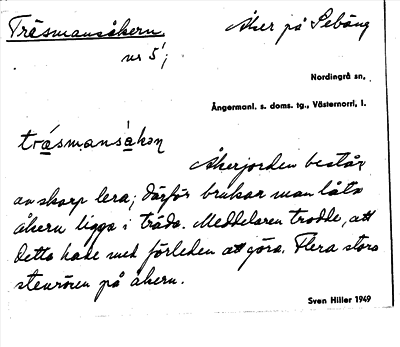 Träsmansåkern.
Åker på Sebäng
nr 5;
Nordingrå sn,
Ångermanl. s. doms. tg., Västernorrl. l.
Åkerjorden består
av skarp lera; därför brukar man låta
åkern ligga i träda. Meddelaren trodde, att
detta hade med förleden att göra. Flera stora
stenrösen på åkern.
Sven Hiller 1949